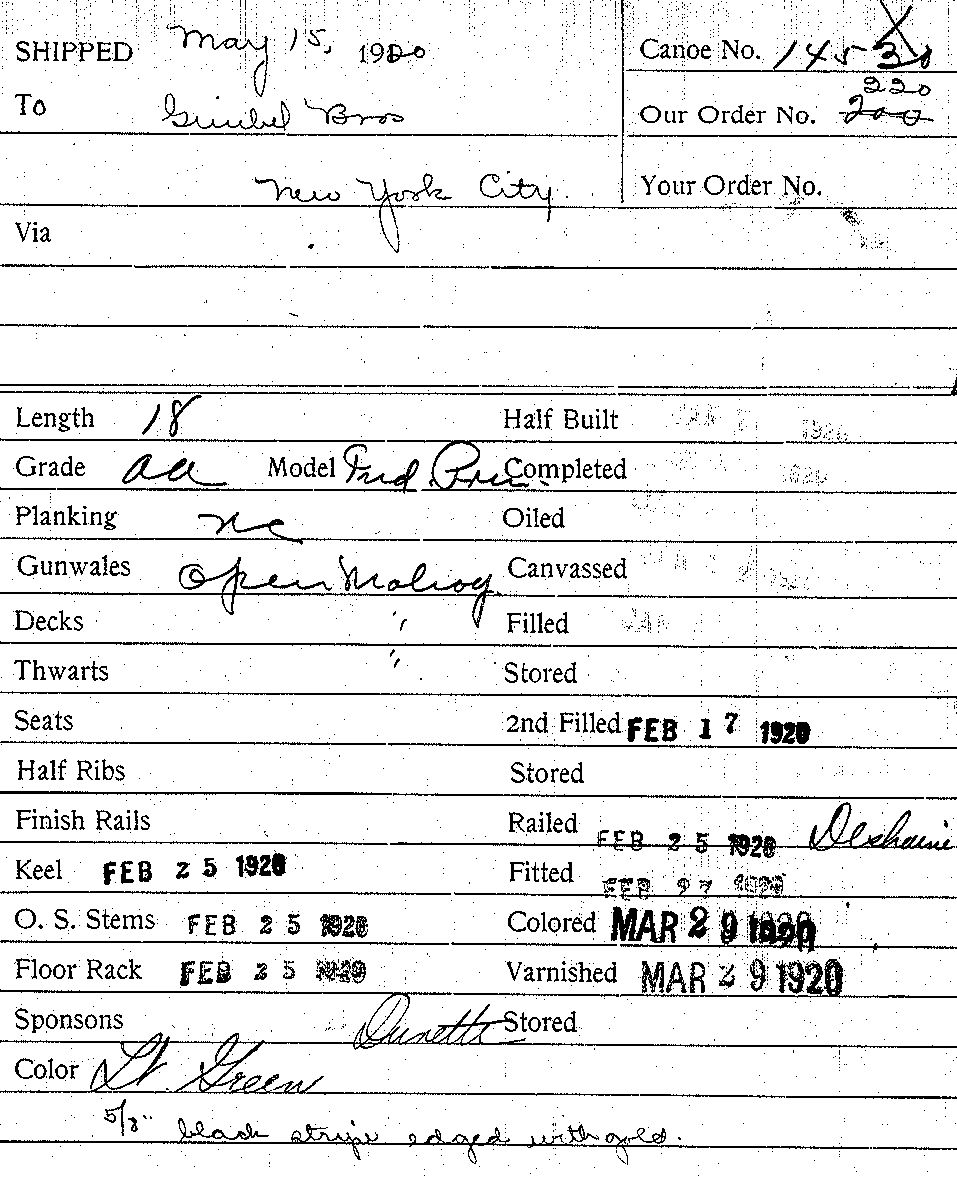 SHIPPED May 15, 1920 Canoe No. 14530
To Gimbel Bros Our Order No. 200 220
New York City. Your Order No.
Via
Length 18 Half Built JAN 1920
Grade aa Model Completed 1920
Planking nc Oiled
Gunwales Open Mahog. Canvassed 1920
Decks " Filled JAN
Thwarts " Stored
Seats 2nd Filled FEB 17 1920
Half Ribs Stored
Finish Rails Railed FEB 25 1920
Keel FEB 25 1920 Fitted FEB 27 1920
O. S. Stems FEB 25 1920 Colored MAR 29 1920
Floor Rack FEB 25 1920 Varnished MAR 29 1920
Sponsons Stored
Color Lt Green
5/8" black stripe edged with gold.